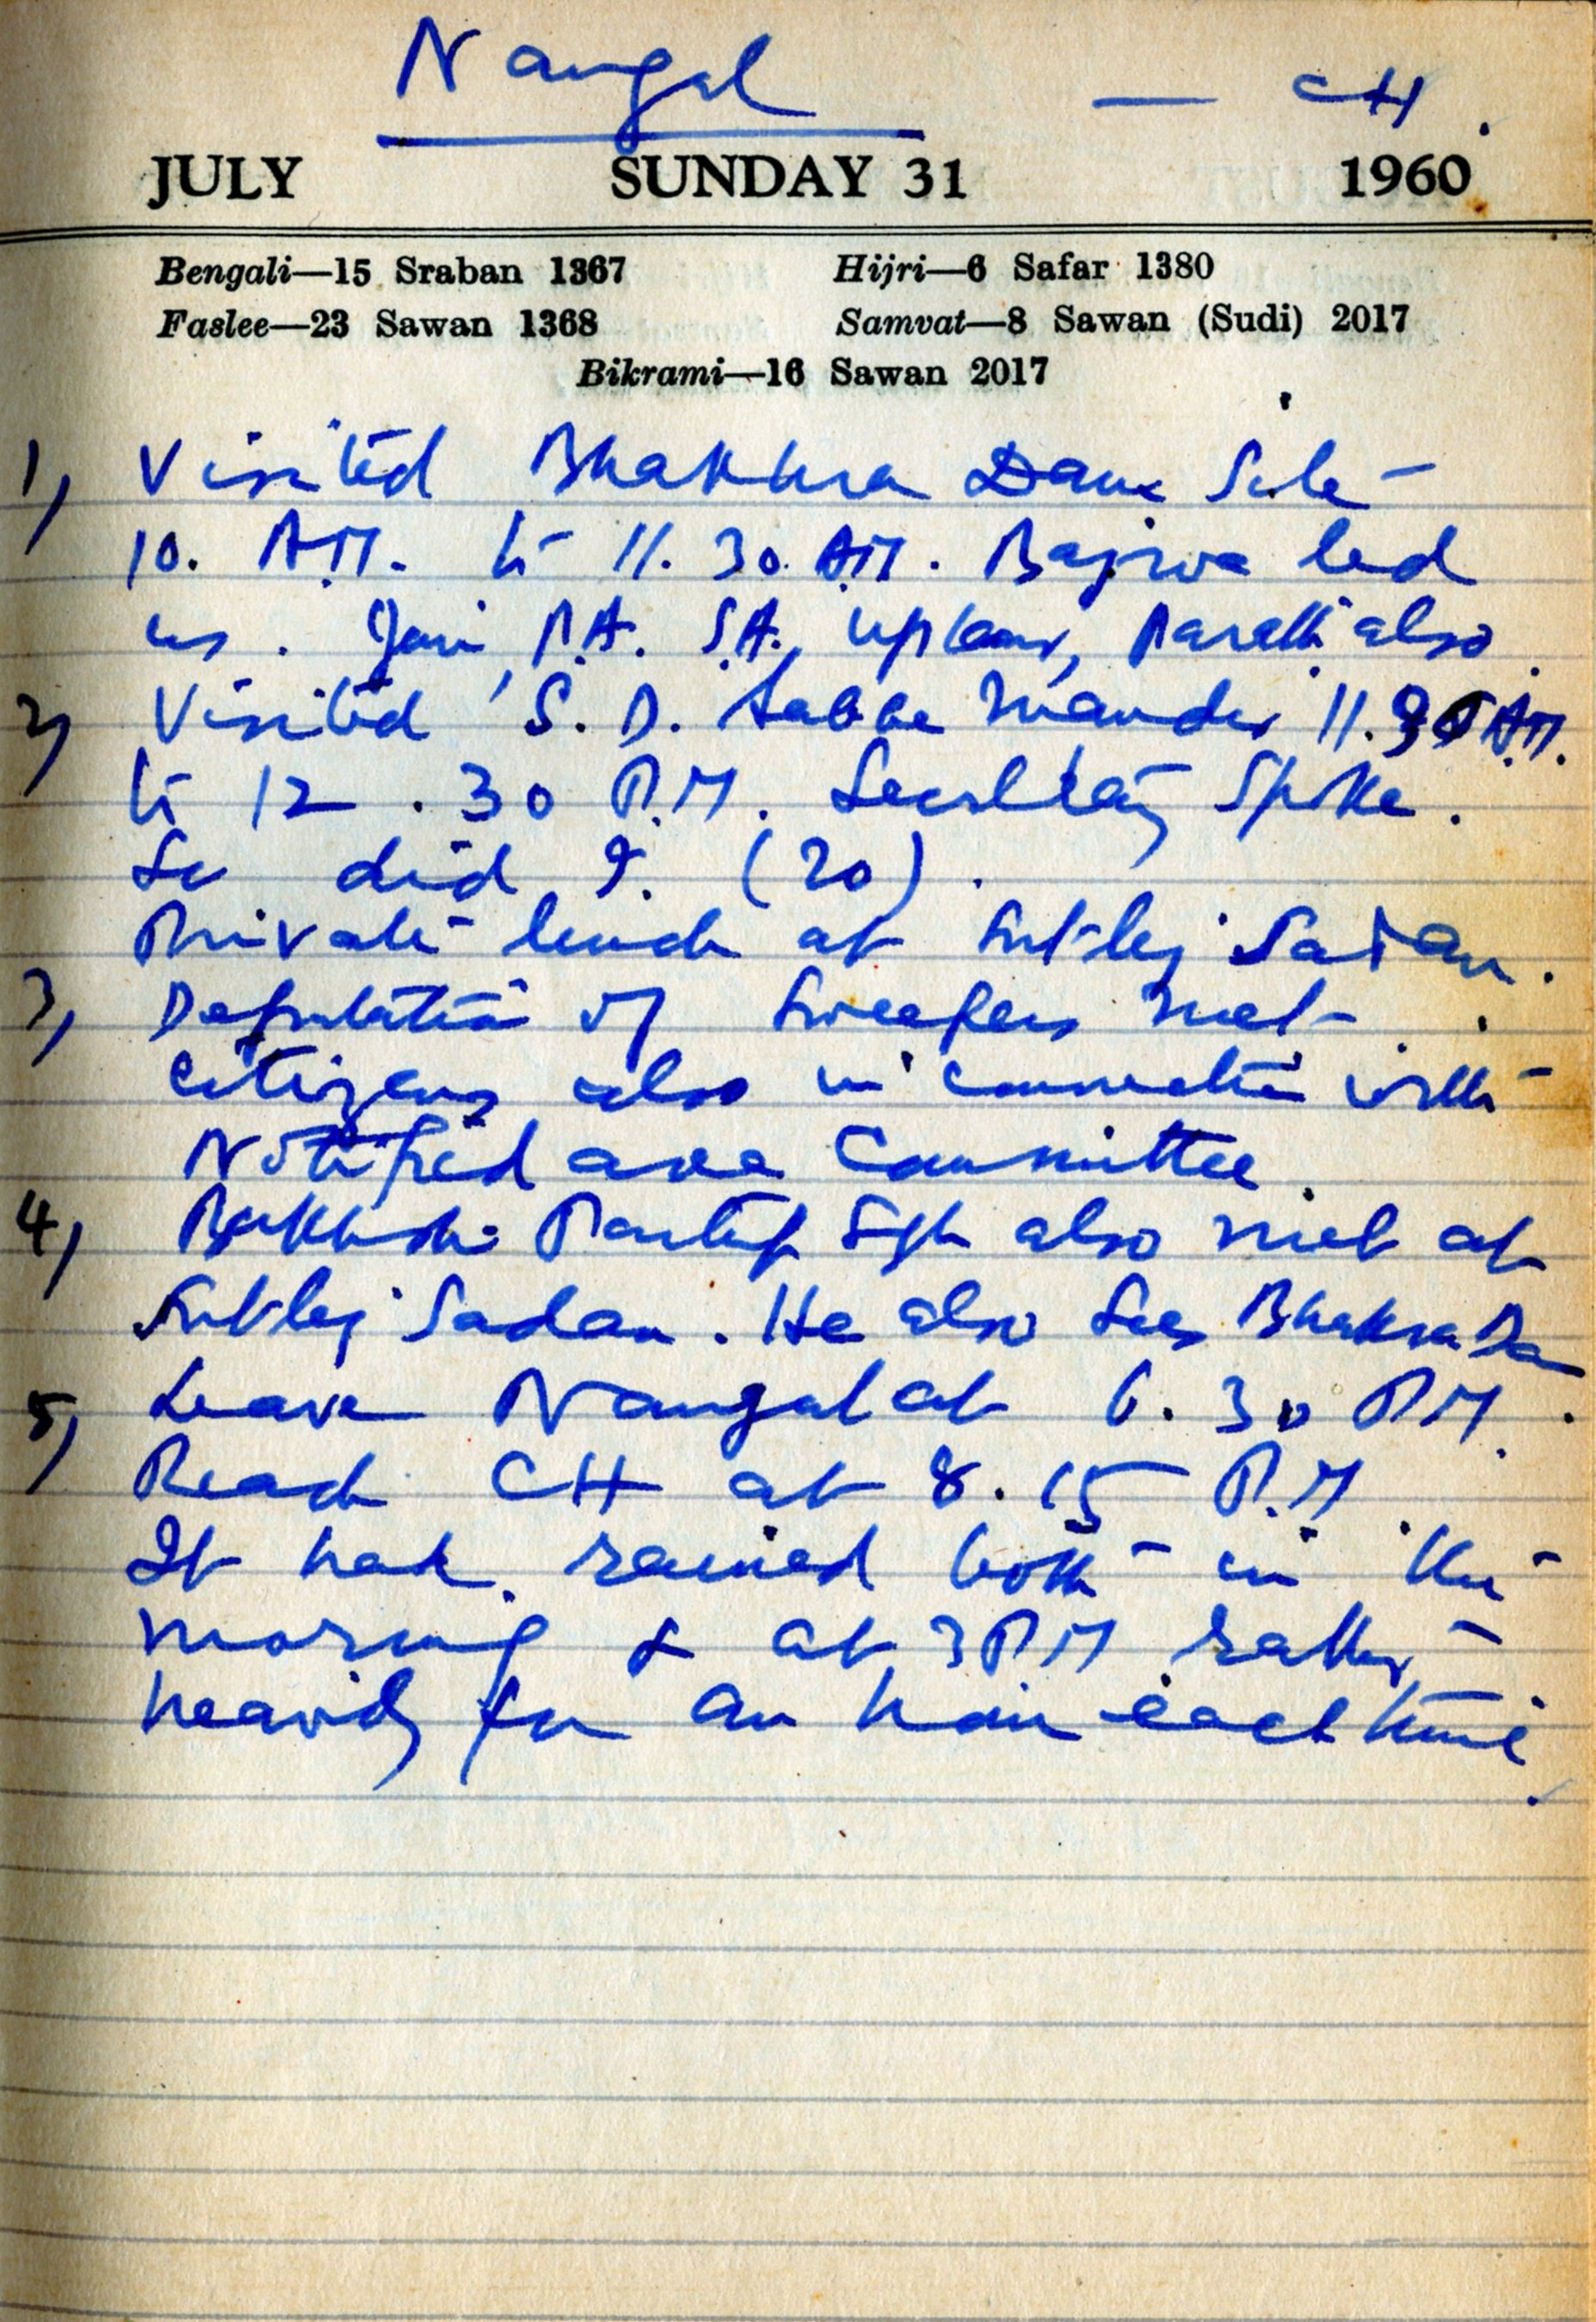 Nangal — CH.
JULY SUNDAY 31 1960
Bengali—15 Sraban 1367 Hijri—6 Safar 1380
Faslee—23 Sawan 1368 Samvat—8 Sawan (Sudi) 2017
Bikrami—16 Sawan 2017
1) Visited Bhakhra Dam Site
10. A.M. to 11.30. AM. Bajwa led
us. P.A. S.A. also.
2) Visited S.D. Mander 11.30 AM.
to 12.30 P.M. Secretary Spoke.
So did I. (20).
Private lunch at Sutlej Sadan.
3) Deputation of Sweepers met.
Citizens also in connection with
Notified area Committee.
4) Bakhshi Partap Sgh also met at
Sutlej Sadan. He also sees Bhakra Da
5) Leave Nangal at 6.30 PM.
Reach CH at 8.15 P.M.
It had rained both in the
morning & at 3 PM rather
heavily for an hour each time.